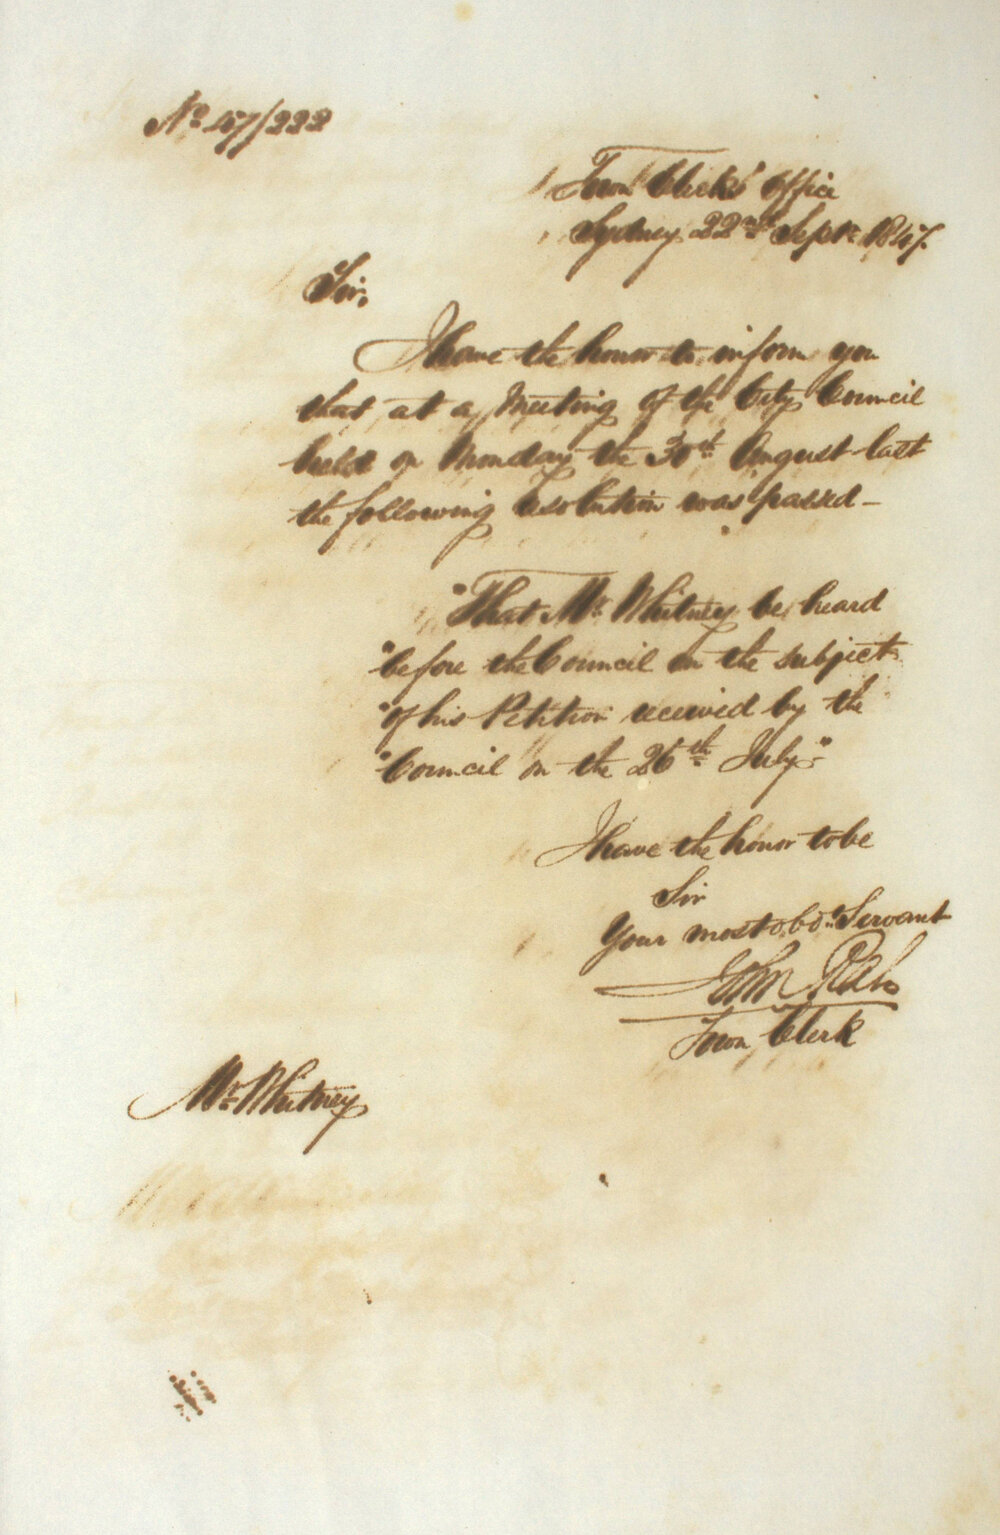 No. 47/222
Town Clerks' Office
Sydney 22nd Septr. 1847.
Sir,
I have the honor to inform you
that at a Meeting of the City Council
held on Monday the 30th August last
the following resolution was passed —
"That Mr. Whitney be heard
"before the Council on the subject
"of his Petition received by the
"Council on the 26th July."
I have the honor to be
Sir
Your most obdt. Servant
John Rae
Town Clerk
Mr. Whitney